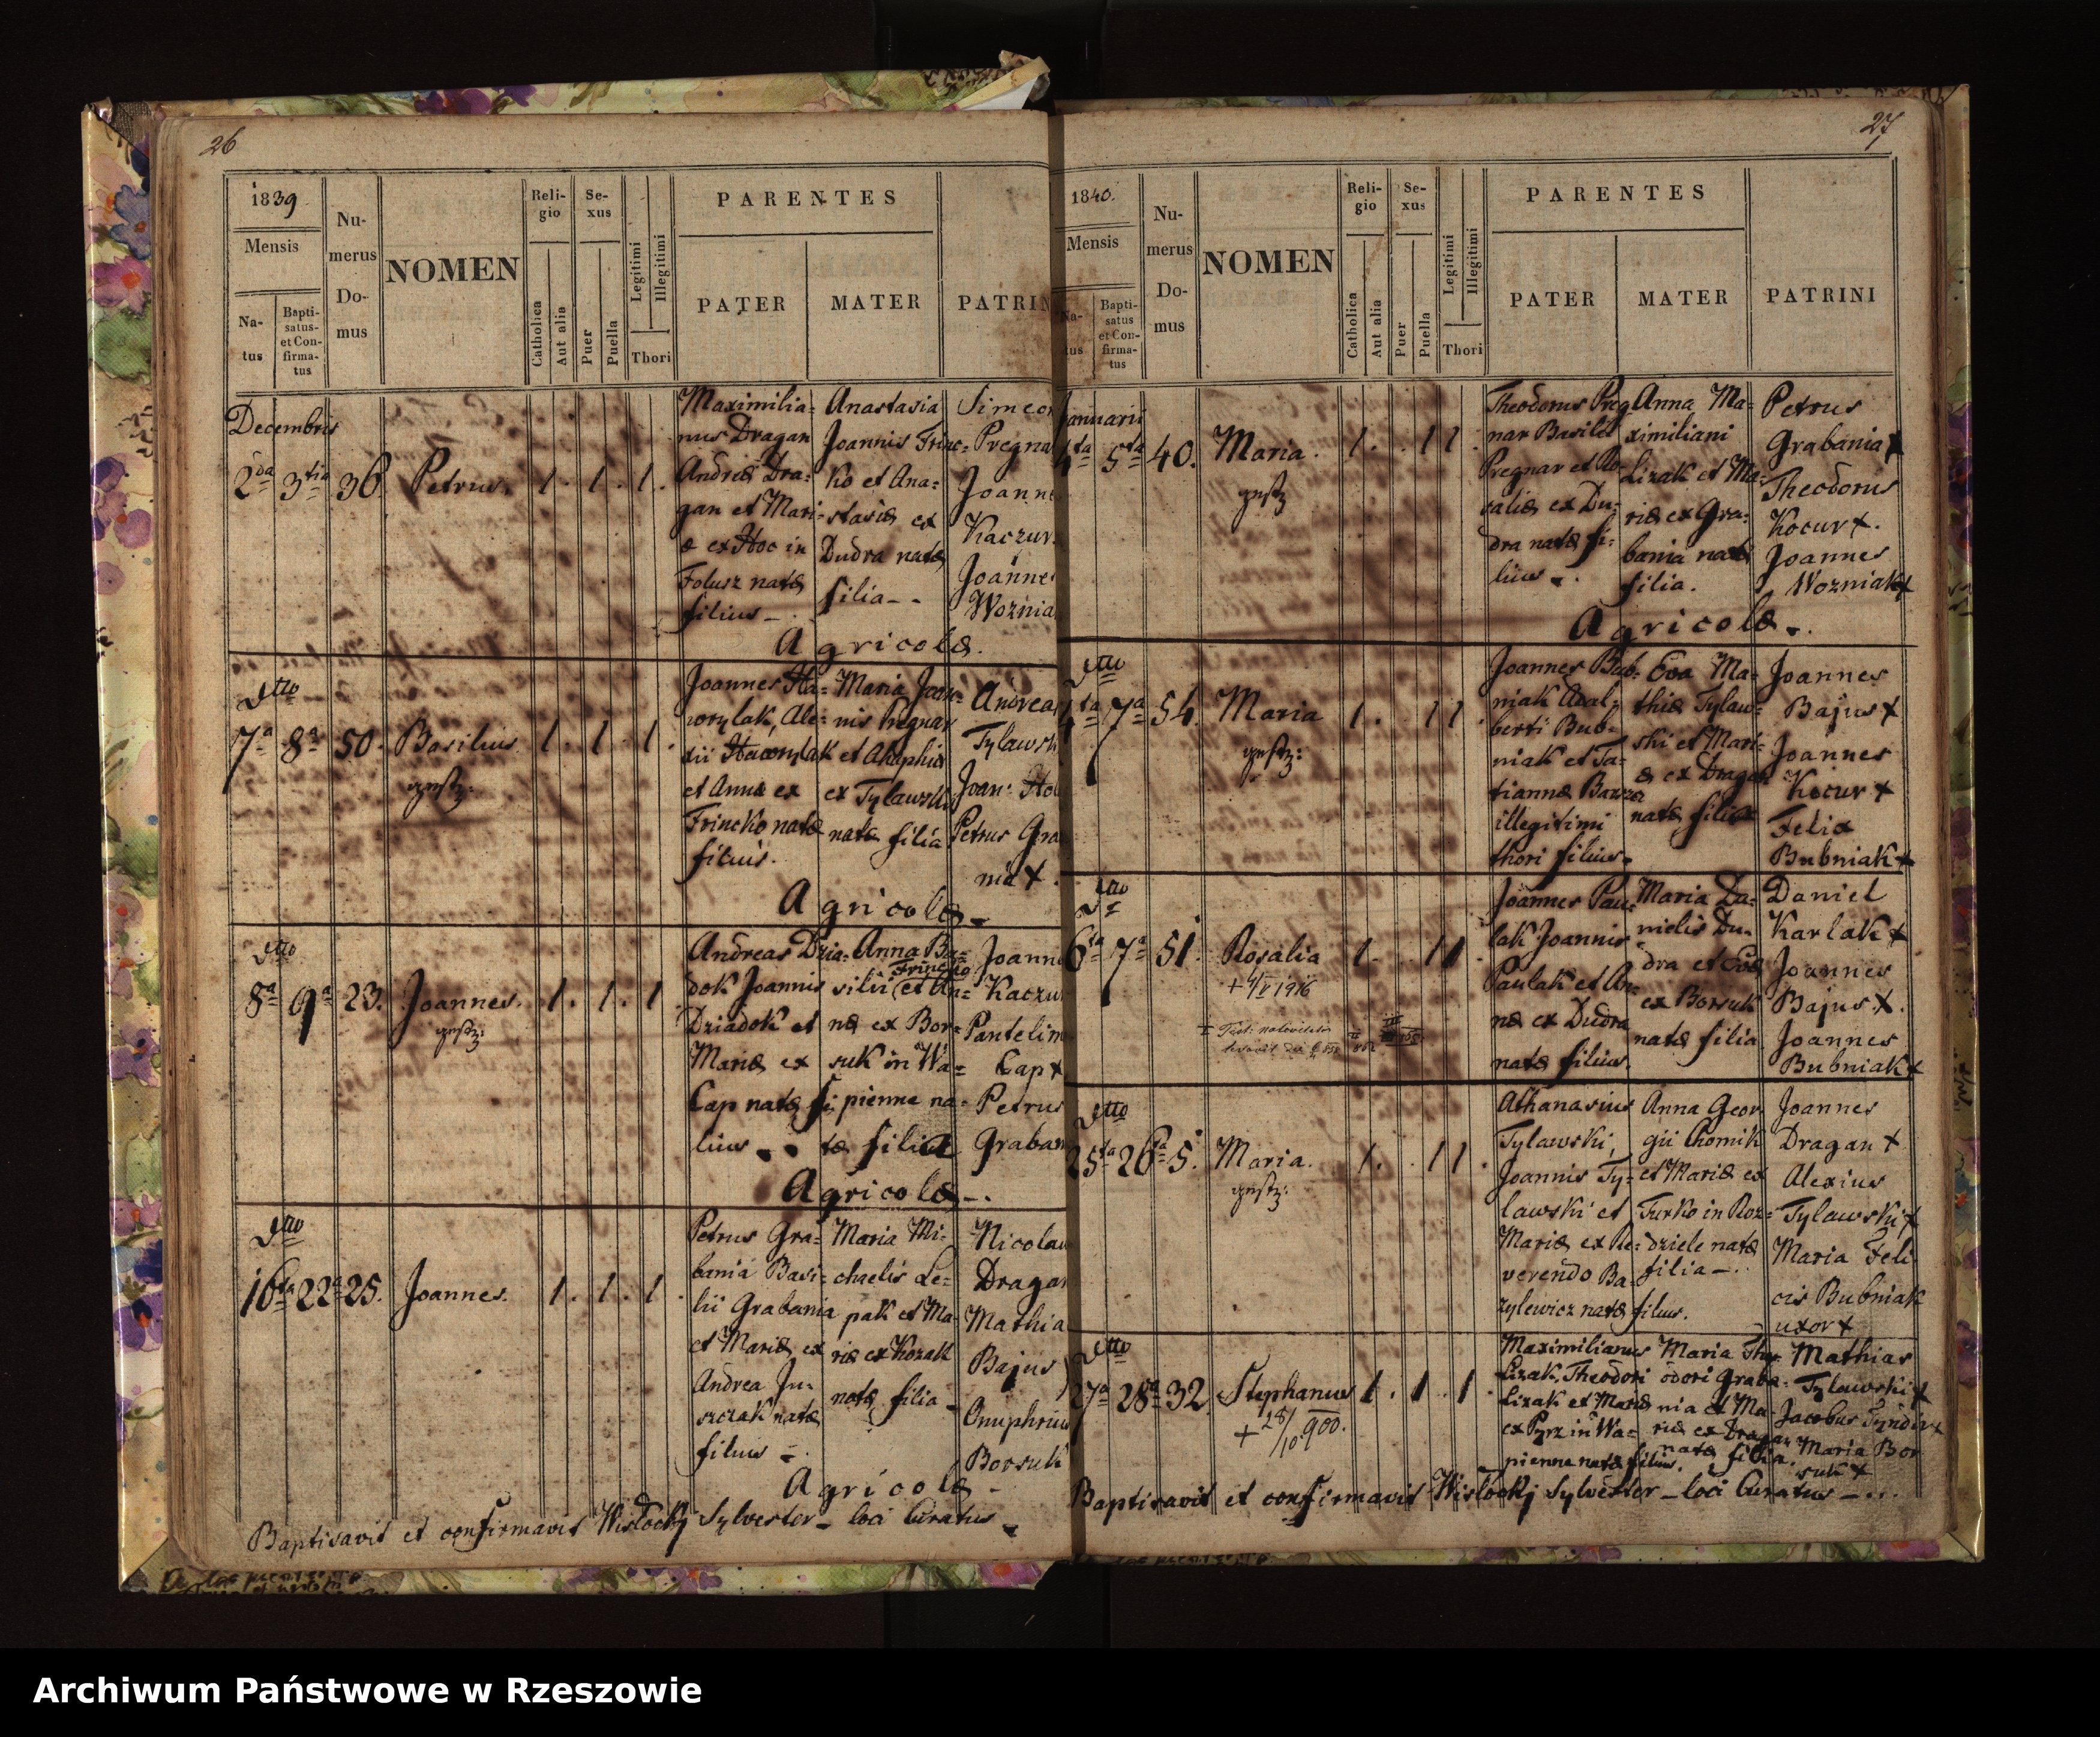 26
1839
Mensis
Na-
tus
Bapti-
satus-
et Con-
firma-
tus
Nu-
merus
Do-
mus
NOMEN
Reli-
gio
Catholica
Aut alia
Se-
xus
Puer
Puella
Legitimi
Illegitimi
Thori
PARENTES
PATER
MATER
PATRIN
Decembris
2da 3tia 36. Petrus. 1. 1. 1.
Maximilia=
nus Dragan
Andreæ Dra=
gan et Mari=
æ ex Hoc in
Folusz natæ
filius -
Anastasia
Joannis Frinc=
ko et Ana=
stasiæ ex
Dudra natæ
filia - -
Simeon
Pregna
Joanne
Kaczur
Joannes
Woznia
Agricolæ.
dtto
7a 8a 50. Basilius 1. 1. 1.
Joannes Ha=
worylak, Ale=
xii Haworylak
et Annæ ex
Frincko natæ
filius.
Maria Joan=
nis Pregnar
et Ahaphiæ
ex Tylawski
natæ filia
Andrea
Tylawsk
Joan:
Petrus Gra
nia +.
Agricolæ -
dtto
8a 9a 23. Joannes. 1. 1. 1
Andreas Dzia=
dok Joannis
Dziadok et
Mariæ ex
Cap natæ fi=
lius - .
Anna Ba=
silii Frincko et An=
næ ex Bor=
suk in Wa=
pienne na=
tæ filia
Joanne
Kaczu
Pantelim
Cap +
Petrus
Graban
Agricolæ - .
dtto
16ta 22a 25. Joannes. 1. 1. 1.
Petrus Gra=
bania Basi=
lii Grabania
et Mariæ ex
Andrea Ju=
szczak natæ
filius - .
Maria Mi=
chaelis Le=
pak et Ma=
riæ ex Kozak
natæ filia -
Nicolau
Dragan
Mathia
Bajus
Onuphrius
Borsuk
Agricolæ -
Baptisavit et confirmavit Wisłocky Sylvester - loci Curatus -
27
1840.
Mensis
Na-
tus
Bapti-
satus
et Con-
firma-
tus
Nu-
merus
Do-
mus
NOMEN
Reli-
gio
Catholica
Aut alia
Se-
xus
Puer
Puella
Legitimi
Illegitimi
Thori
PARENTES
PATER
MATER
PATRINI
Januarii
4ta 5ta 40. Maria. 1. . 1 1.
Theodorus Preg
nar Basilii
Pregnar et Ro=
saliæ ex Du=
dra natæ fi=
lius - .
Anna Ma=
ximiliani
Lizak et Ma=
riæ ex Gra=
bania natæ
filia.
Petrus
Grabania +
Theodorus
Kocur +.
Joannes
Wozniak +
Agricolæ - .
dtto
4ta 7a 54. Maria 1. . 1 1.
Joannes Bub=
niak Adal=
berti Bub=
niak et Ta=
tiannæ Banza
illegitimi
thori filius -
Eva Ma=
thiæ Tylaw=
ski et Mari=
æ ex Dragan
natæ filia
Joannes
Bajus +
Joannes
Kocur +
Felix
Bubniak +
dtto
6ta 7a 51. Rosalia 1. . 1 1.
+ 4/V 1916
Joannes Paw=
lak Joannis
Paulak et An=
næ ex Dudra
natæ filius.
Maria Da=
nielis Du=
dra et Evæ
ex Borsuk
natæ filia
Daniel
Karlak +
Joannes
Bajus +.
Joannes
Bubniak +
dtto
25ta 26ta 5. Maria. 1. . 1 1.
Athanasius
Tylawski,
Joannis Ty=
lawski et
Mariæ ex Re=
verendo Ba=
zylewicz natæ filius.
Anna Geor
gii Chomik
et Mariæ ex
Turko in Roz=
dziele natæ
filia - .
Joannes
Dragan +
Alexius
Tylawski +
Maria Feli
cis Bubniak
uxor +
dtto
27a 28a 32. Stephanus 1. 1. 1.
+ 28/10 900.
Maximilianus
Lizak, Theodori
Lizak et Mariæ
ex Pyrz in Wa=
pienne natæ filius.
Maria The=
odori Graba=
nia et Ma=
riæ ex Dragan
natæ filia.
Mathias
Tylawski +
Jacobus
Maria Bor
suk +
Baptisavit et confirmavit Wisłockj Sylvester - loci Curatus - ...
Archiwum Państwowe w Rzeszowie